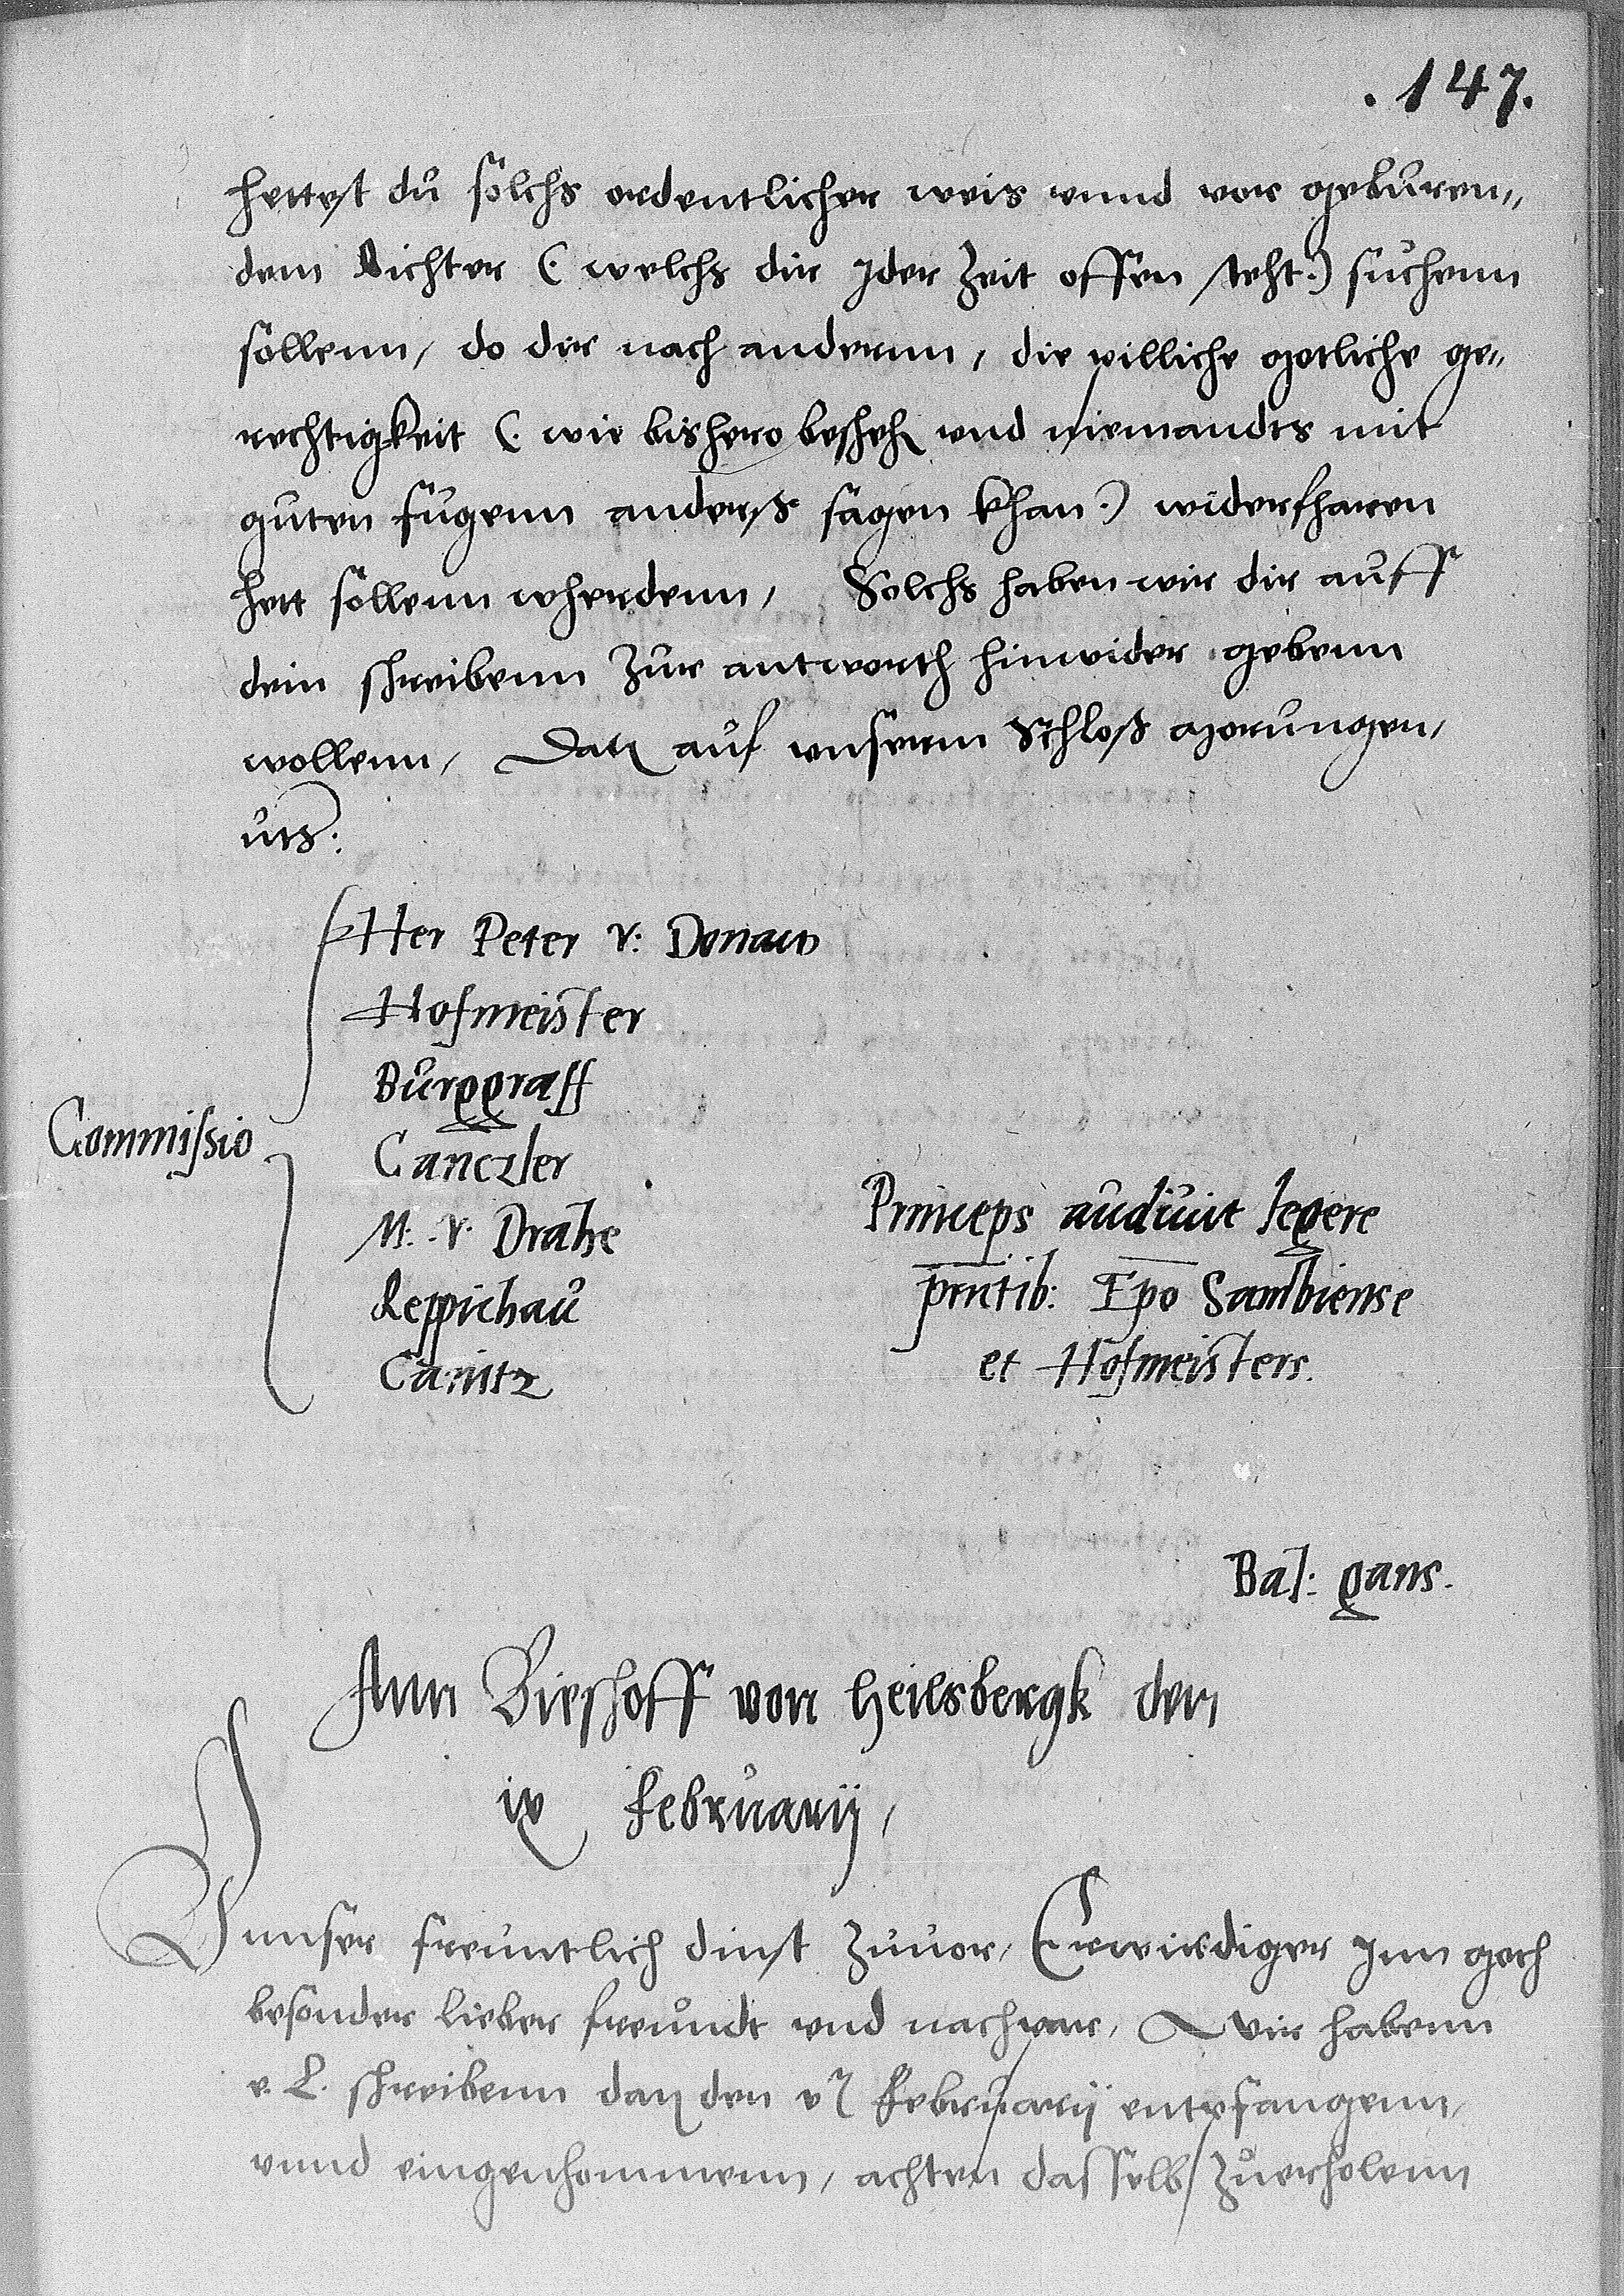 .147.
hettest du solchs ordentlicher weis vnnd vor geburen„
dem Richter (: welchs dir jder Zeit offen steht :) suchenn
sollenn, do dir nach anderm, die pilliche gotliche ge„
rechtigkeit (: wie bishero besheh vnd niemandts mit
guten fugenn anderst sagen khan :) widerfharen
hett sollenn wherdenn, Solchs haben wir dir auff
dein schreibenn Zur antworth hinwider gebenn
wollenn, Dat auf vnserm Schloß Morungen,
uts:
Her Peter v: Donaw
Hofmeister
Burggraff
Commissio
Canczler
M: v. Drahe
Reppichau
Canitz
Princeps audiuit legere
pntib: Epo Sambiense
et Hofmeisters.
Bal: gans.
Ann Bischoff von Heilsbergk den
ix Februarij,
Vunser freuntlich dinst zuuor, Erwirdiger jnn goth
besonder lieber freundt vnd nachpar, Wir habenn
e. L. schreibenn dat den vj Februarij entpfangenn,
vnnd eingenhommenn, achten dasselb Zuerholenn